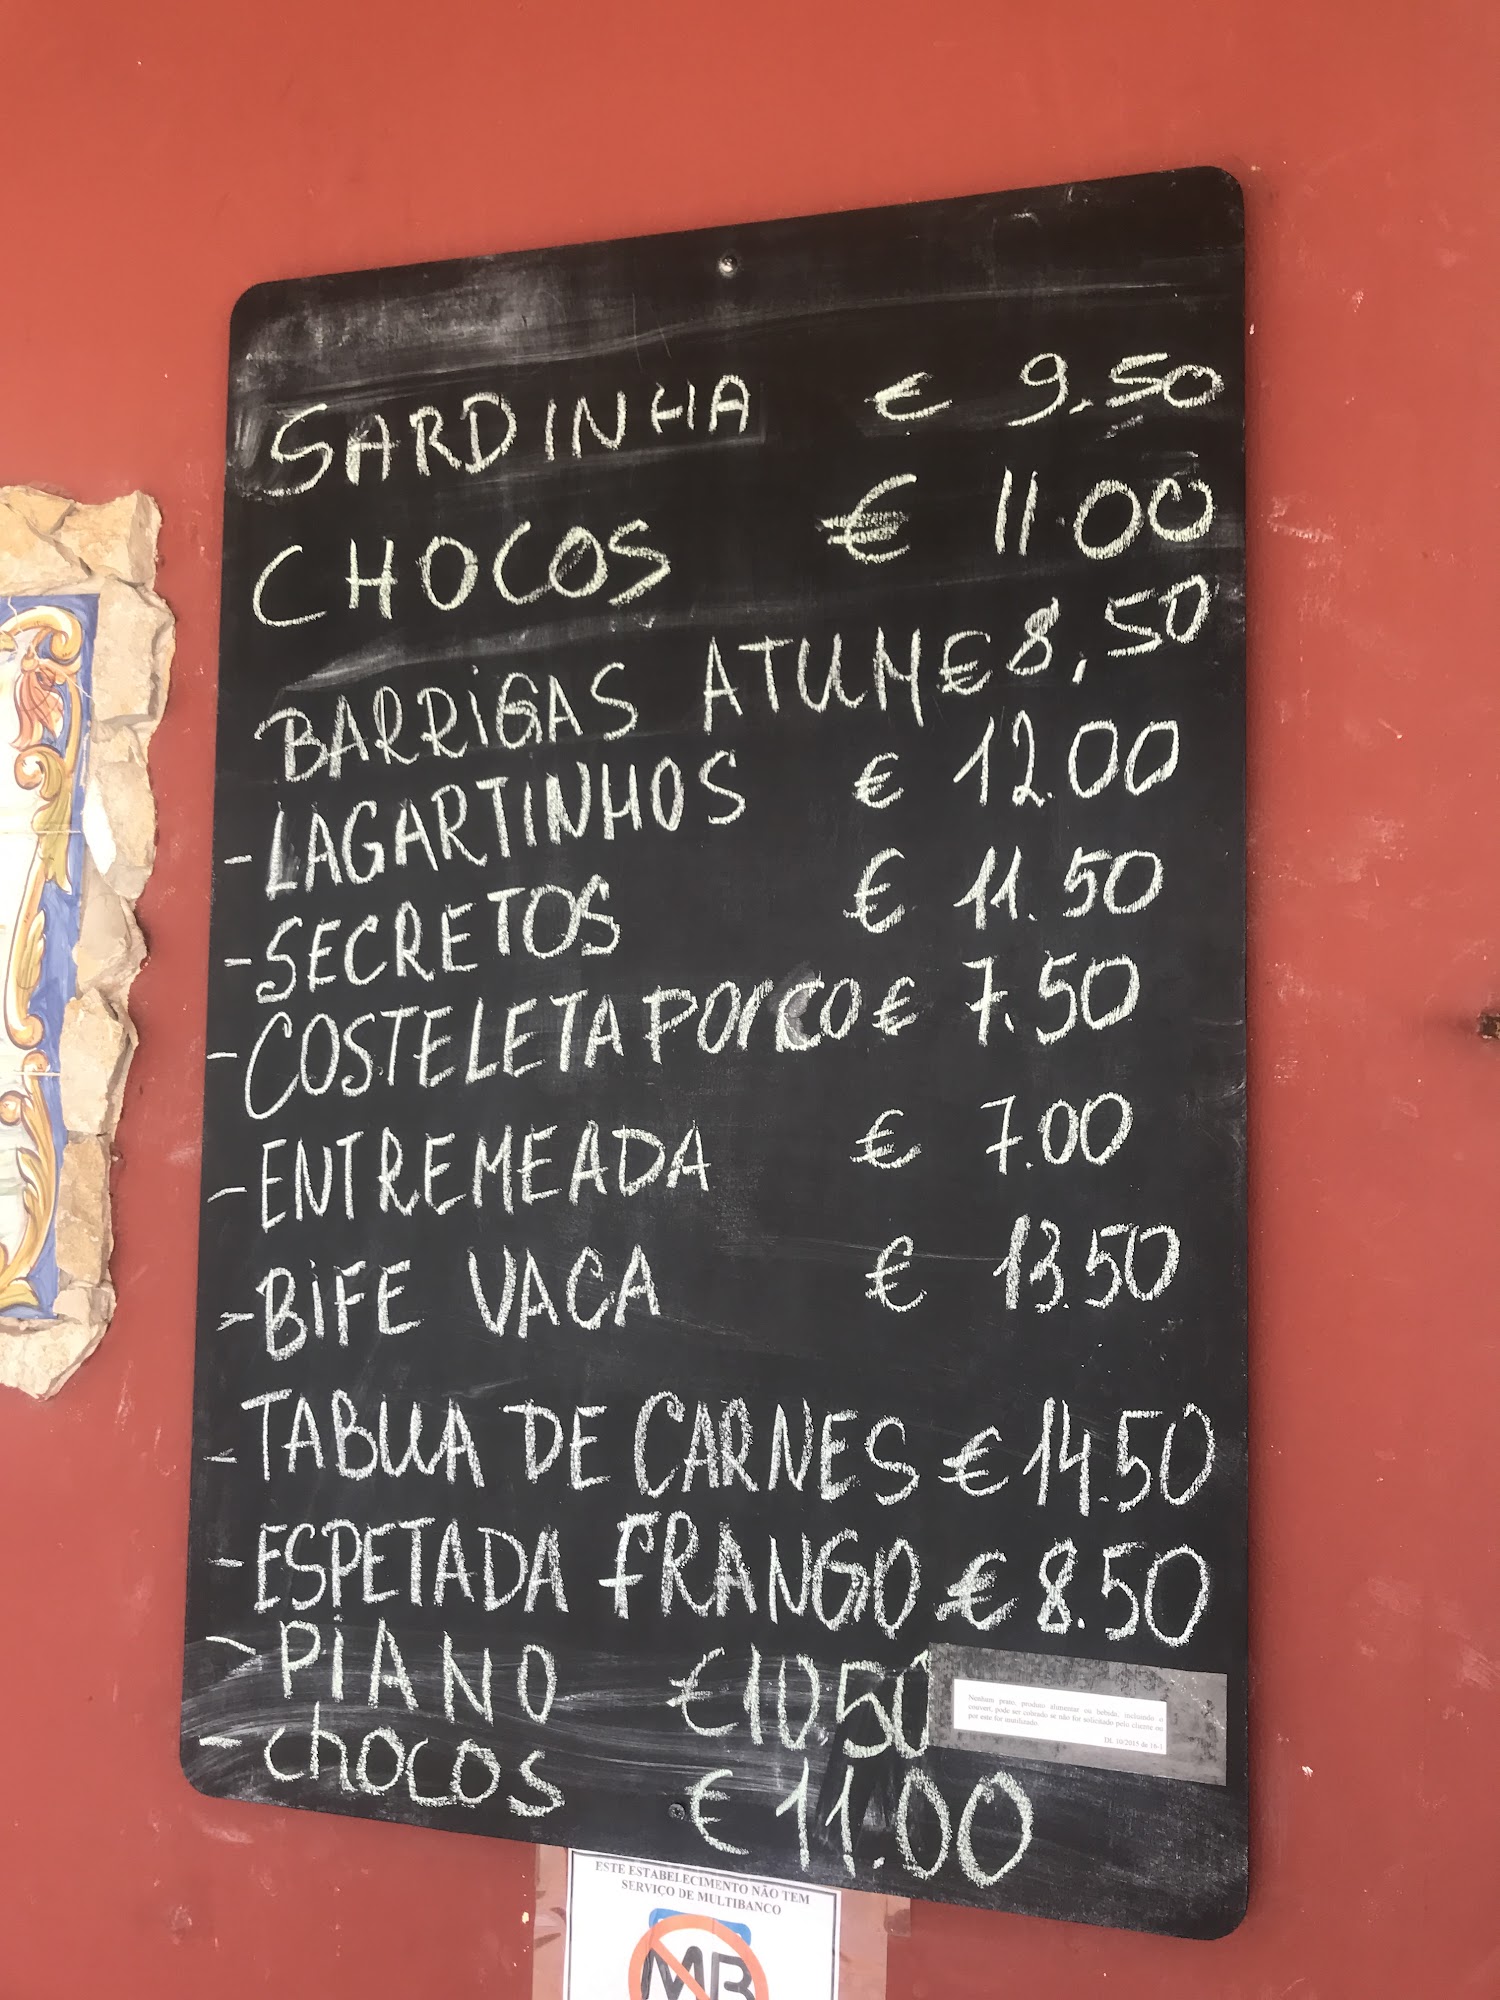 SARDINHA € 9.50
CHOCOS € 11.00
BARRIGAS ATUM € 8,50
- LAGARTINHOS € 12.00
- SECRETOS € 11.50
- COSTELETA PORCO € 7.50
- ENTREMEADA € 7.00
- BIFE VACA € 13.50
- TABUA DE CARNES € 14.50
- ESPETADA FRANGO € 8.50
- PIANO € 10,50
- chocos € 11.00
Nenhum prato, produto alimentar ou bebida, incluindo o
couvert, pode ser cobrado se não for solicitado pelo cliente ou
por este for inutilizado.
DL 10/2015 de 16-1
ESTE ESTABELECIMENTO NÃO TEM
SERVIÇO DE MULTIBANCO
MB